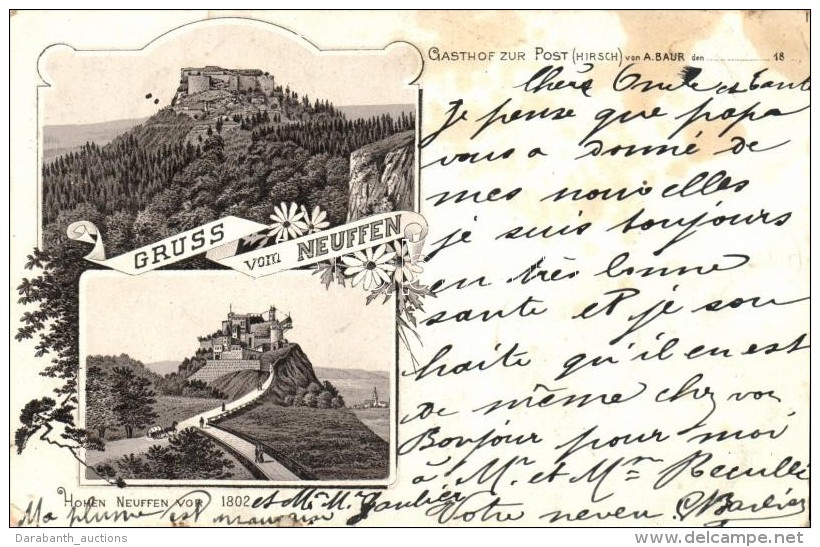 GASTHOF ZUR POST (HIRSCH) von A. BAUR den 18
Chers Oncle et Tante
Je pense que papa
vous a donné de
mes nouvelles
je suis toujours
en très bonne
sante et je sou
haite qu'il en est
de même chez vou
Bonjour pour moi
à Mr. et Mme
et Mme Mr
Votre neveu
Ma plume est mauvaise
GRUSS vom NEUFFEN
HOHEN NEUFFEN VOR 1802
Darabanth_auctions
http://www.delcampe.net